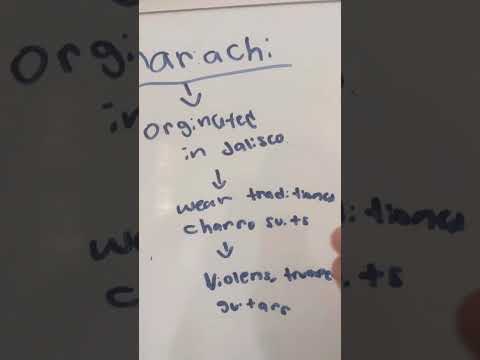 marachi
Orginated
in Jalisco
wear traditional
charro suits
Violens,
guitars